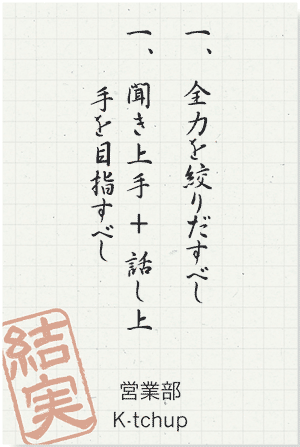 一、全力を絞りだすべし
一、聞き上手＋話し上
手を目指すべし
結実
営業部
K-tchup